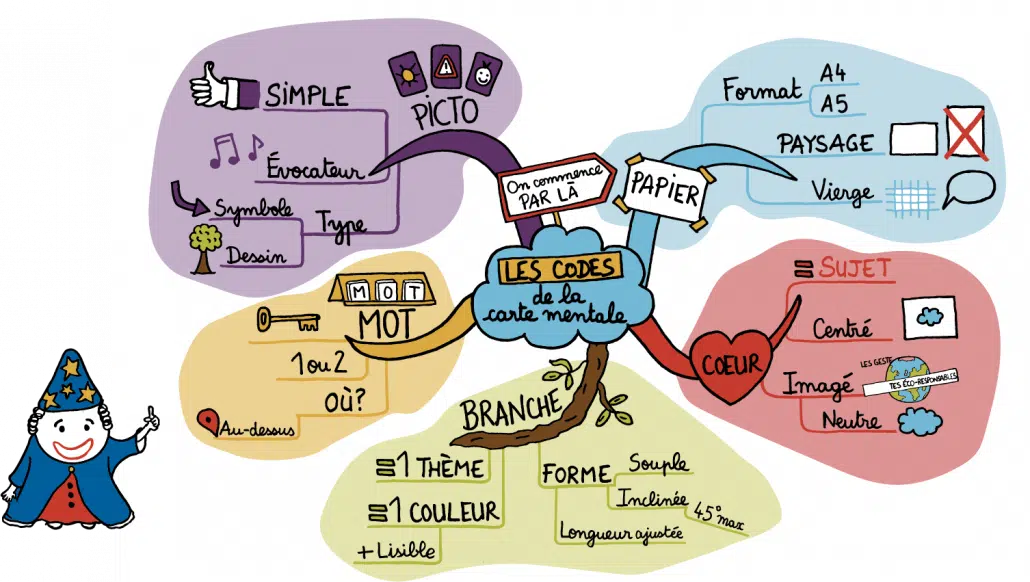 On commence
PAR LÀ
LES CODES
de la
carte mentale
PAPIER
Format
A4
A5
PAYSAGE
Vierge
COEUR
= SUJET
Centré
Imagé
LES GESTE
TES ÉCO-RESPONSABLES
Neutre
BRANCHE
=1 THÈME
=1 COULEUR
+ Lisible
FORME
Souple
Inclinée
45° max
Longueur ajustée
MOT
MOT
1 ou 2
OÙ?
Au-dessus
PICTO
SiMPLE
Évocateur
Type
Symbole
Dessin